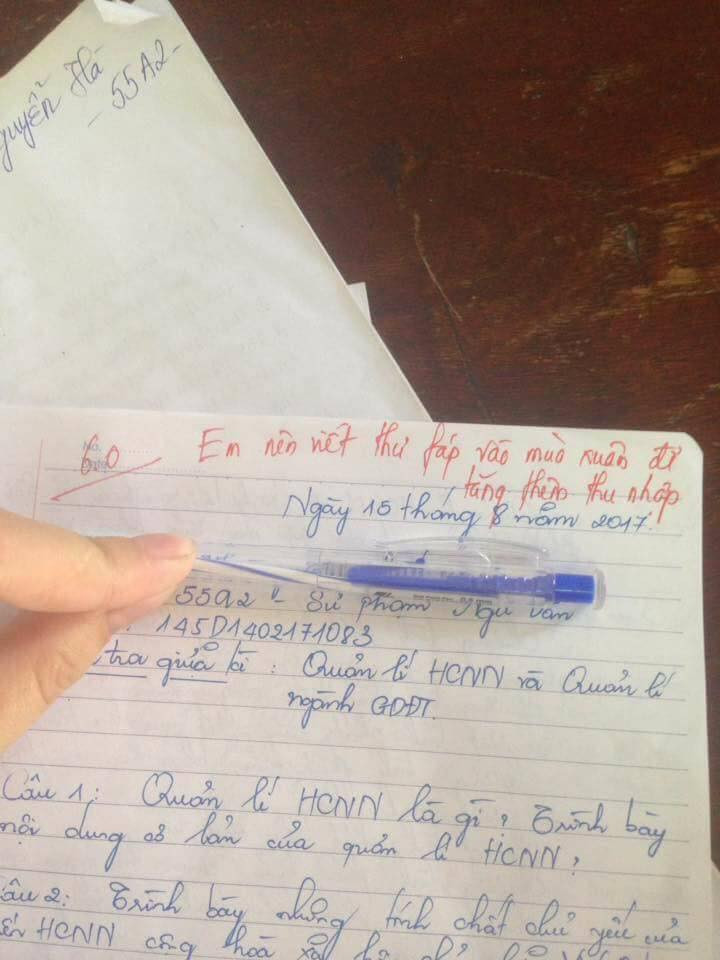 guyễn Hà
- 55A2 -
No.
Date
6.0
Em nên viết thư fáp vào mùa xuân để
tăng thêm thu nhập
Ngày 15 tháng 8 năm 2017.
55a2 - Sư phạm Ngữ văn
145D1402171083
tra giữa kì : Quản lí HCNN và Quản lí
ngành GDĐT.
Câu 1: Quản lí HCNN là gì ? Trình bày
nội dung cơ bản của quản lí HCNN ?
Câu 2: Trình bày những tính chất chủ yếu của
HCNN cộng hoà xã